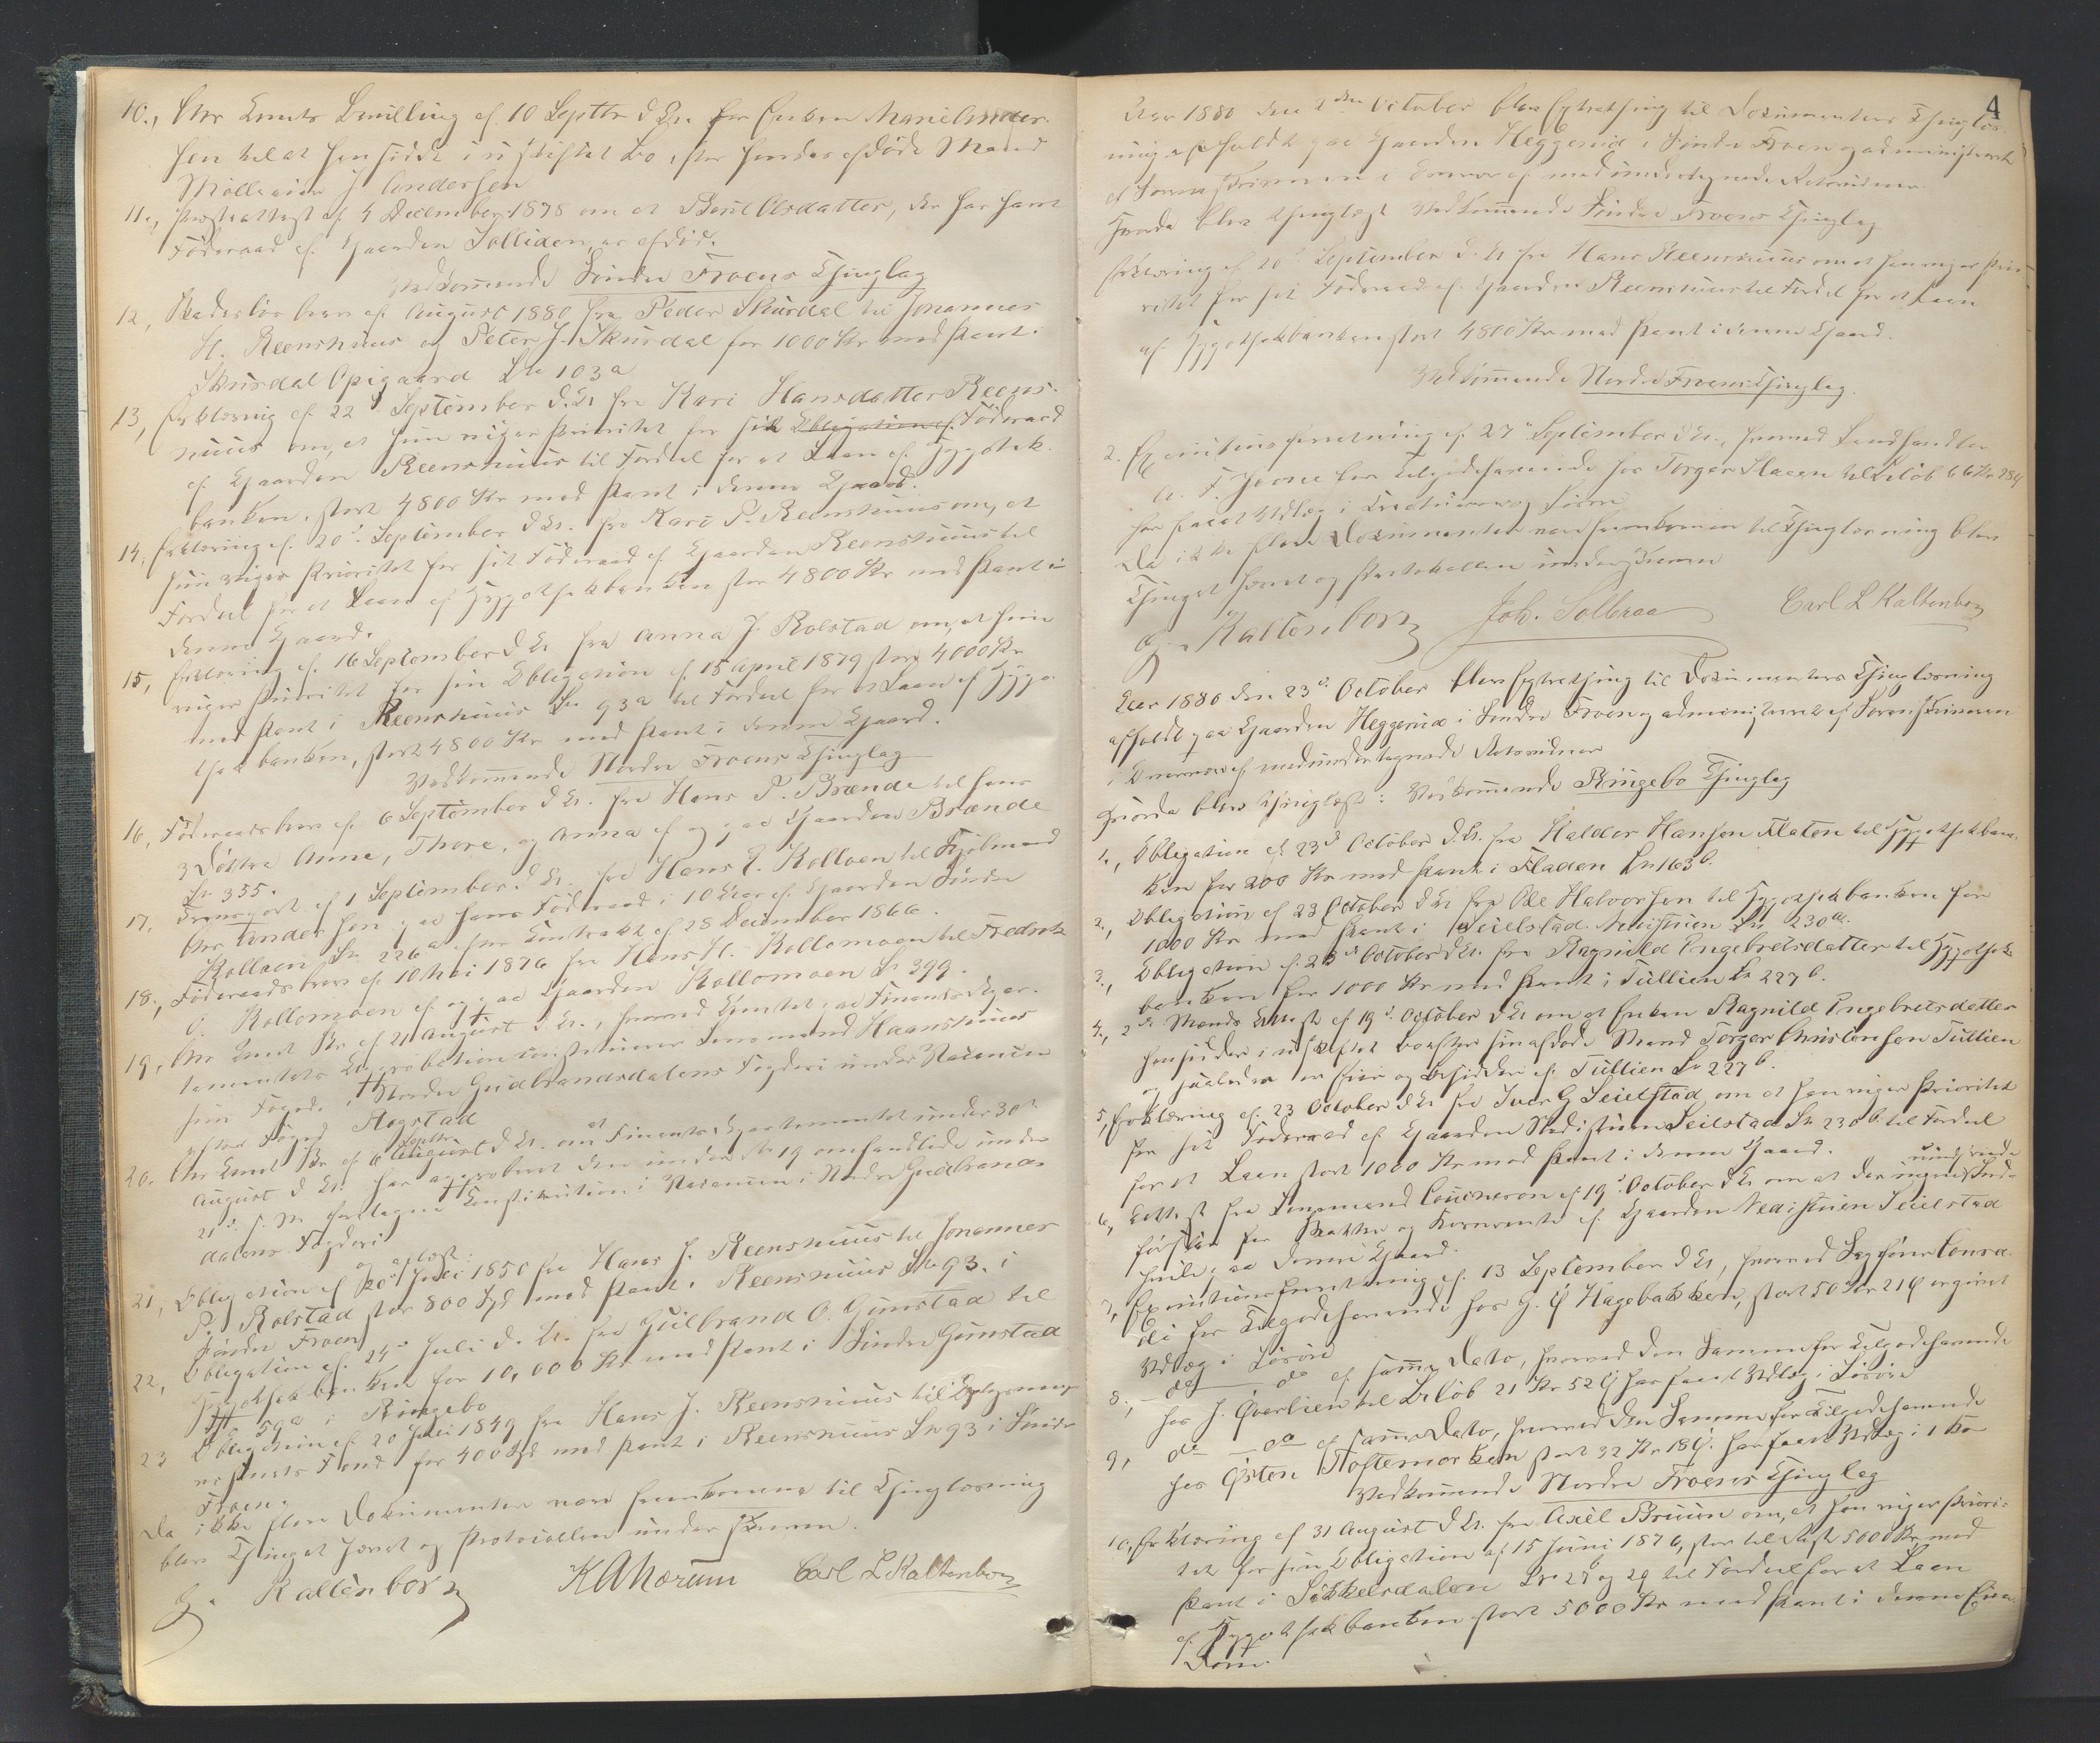 10., Amts Bevilling af 10 Septbr d Ar. for Enken Marie Ander-
sen til at hensidde i uskiftet Bo efter hendes afdøde Mand
Mølleeier J Andersen
11., Præsteattest af 4 December 1878 om at Beret Olsdatter, der har havt
Föderaad af Gaarden Solliden, er afdød.
Vedkommende Söndre Froens Thinglag
12, Skadesløsbrev af August 1880 fra Peder Skurdal til Johannes
H. Reenshuus og Peter J. Skurdal for 1000 Kr med Pant i
Skurdal Opigaard Lr 103a
13, Erklæring af 22 September d. Ar fra Kari Hansdatter Reens-
huus om, at hun viger Prioritet for sit Obligation af Föderaad
af Gaarden Reenshuus til Fordel for et Laan af Hypothek-
banken, stort 4800 Kr med Pant i denne Gaard.
14, Erklæring af 20d September d Ar. fra Kari P. Reenshuus om, at
hun viger Prioritet for sit Föderaad af Gaarden Reenshuus til
Fordel for et Laan af Hypothekbanken stor 4800 Kr med Pant i
denne Gaard.
15, Erklæring af 16 September d Ar fra Anna J. Rolstad om, at hun
viger Prioritet for sin Obligation af 15 April 1879 stor 4000 Kr
med Pant i Reenshuus Lr 93a til Fordel for et Laan af Hypo-
thekbanken, stort 4800 Kr med Pant i denne Gaard.
Vedkommende Nordre Froens Thinglag
16, Föderaadsbrev af 6 September d Ar. fra Hans P. Brænde til hans
3 Döttre Anne, Thore, og Anna af og paa Gaarden Brænde
Lr 355.
17, Transport af 1 September d Ar fra Hans E. Kolloen til Hjelmand
Andersen paa hans Föderaad i 10 Aar af Gaarden Söndre
Kolloen Lr 226a efter Contrakt af 28 December 1866.
18., Föderaadsbrev af 10 Mai 1876 fra Hans H. Kollomoen til Fredrik
O. Kollomoen af og paa Gaarden Kollomoen Lr 399.
19, Amts Br af 21 August d Ar., hvorved Amtet paa Finants Depar-
tementets Approbation constituerer Lensmand Haanshuus
som Foged i Nordre Gudbrandsdalens Fogderi under Vacancen
efter Foged Aagstad
20. Amts Br af 6 Septbr August d Ar. om at Finants Departementet under 30d
August d Ar. har approberet den under No 19 omhandlede under
21d s. M. foretagne Constitution i Vacancen i Nordre Gudbrands-
dalens Fogderi
21, Obligation af og aflæst 20d Juli 1850 fra Hans J. Reenshuus til Johannes
P. Rolstad stor 800 Spd med Pant i Reenshuus Lr 93. i
Söndre Froen
22, Obligation af 24d Juli d. Ar. fra Gulbrand O. Gunstad til
Hypothekbanken for 10,000 Kr med Pant i Söndre Gunstad
59a i Ringebo
23 Obligation af 20 Juli 1849 fra Hans J. Reenshuus til Oplysnings-
væsenets Fond for 400 Spd med Pant i Reenshuus Lr 93 i Söndre
Froen.
Da ikke flere Dokumenter vare fremkomne til Thinglæsning
blev Thinget hævet og Protocollen underskreven.
G. Kaltenborn Carl L Kaltenborn
4
Aar 1880 den 2den October blev Extrathing til Dokumenters Thinglæs-
ning afholdt paa Gaarden Heggerud i Söndre Froen og administreret
af Sorenskriveren i Overvær af medundertegnede Retsvidner
Hvorda blev thinglæst Vedkommende Söndre Froens Thinglag
Erklæring af 20d September d. Ar fra Hans Reenshuus om at han viger Prio-
ritet for sit Föderaad af Gaarden Reenshuus til Fordel for et Laan
af Hypothekbanken stort 4800 Kr med Pant i denne Gaard.
Vedkommende Nordre Froens Thinglag.
2. Executionsforretning af 27d September d Ar., hvorved Landhandler
A. F. Hoone for Tilgodehavende hos Torger Haaen til Beløb 66 Kr 28 Ø
har faaet Udlæg i Creaturer og Løsøre
Da ikke flere Dokumenter vare fremkomne til Thinglæsning blev
Thinget hævet og Protokollen underskreven
G. Kaltenborn Joh. Solbraa Carl L Kaltenborn
Aar 1880 den 23d October blev Extrathing til Dokumenters Thinglæsning
afholdt paa Gaarden Heggerud i Söndre Froen og administreret af Sorenskriveren
i Overvær af medundertegnede Retsvidner
Hvorda blev thinglæst: Vedkommende Ringebo Thinglag
1., Obligation af 23d October d. Ar. fra Haldor Hansen Flaten til Hypothekban-
ken for 200 Kr med Pant i Fladen Lr 163b.
2., Obligation af 23 October d Ar fra Ole Halvorsen til Hypothekbanken for
1000 Kr med Pant i Seielstad Nedistuen Lr 230a.
3., Obligation af 23d October d Ar. fra Ragnild Engebretsdatter til Hypothek-
banken for 1000 Kr med Pant i Tullien Lr 227b.
4., 2de Mænds Attest af 19d October d Ar om at Enken Ragnild Engebretsdatter
hensidder i uskiftet Bo efter sin afdøde Mand Torger Christensen Tullien
og saaledes er Eier og Besidder af Tullien Lr 227b.
5, Erklæring af 23 October d Ar fra Iver G Seielstad om at han viger Prioritet
for sit Föderaad af Gaarden Nedistuen Seilstad Lr 230b til Fordel
for et Laan stort 1000 Kr med Pant i denne Gaard.
6, Attest fra Lensmand Coucheron af 19d October d Ar om at der ingen
for Skatter og Kornrente af Gaarden Nedistuen Seielstad
hviler paa denne Gaard.
7, Executionsforretning af 13 September d Ar, hvorved Sagfører Conra-
di for Tilgodehavende hos G. Ø Hagebakken, stort 50 Kr 21 Ø er givet
Udlæg i Løsøre
8, do do af samme Dato, hvorved den Samme for Tilgodehavende
hos J. Øverlien til Beløb 21 Kr 52 Ø har faaet Udlæg i Løsøre
9, do do af samme Dato, hvorved den Samme for Tilgodehavende
hos Østen Toftemorken stort 32 Kr 18 Ø. har faaet Udlæg i 1 Ko
Vedkommende Nordre Froens Thinglag
10, Erklæring af 31 August d Ar. fra Axel Bruun om, at han viger Priori-
tet for sin Obligation af 15 Juni 1876, stor til Rest 5000 Kr, med
Pant i Sikkelsdalen Lr 28b og 29 til Fordel for et Laan
af Hypothekbanken stort 5000 Kr med Pant i denne Eien-
dom.